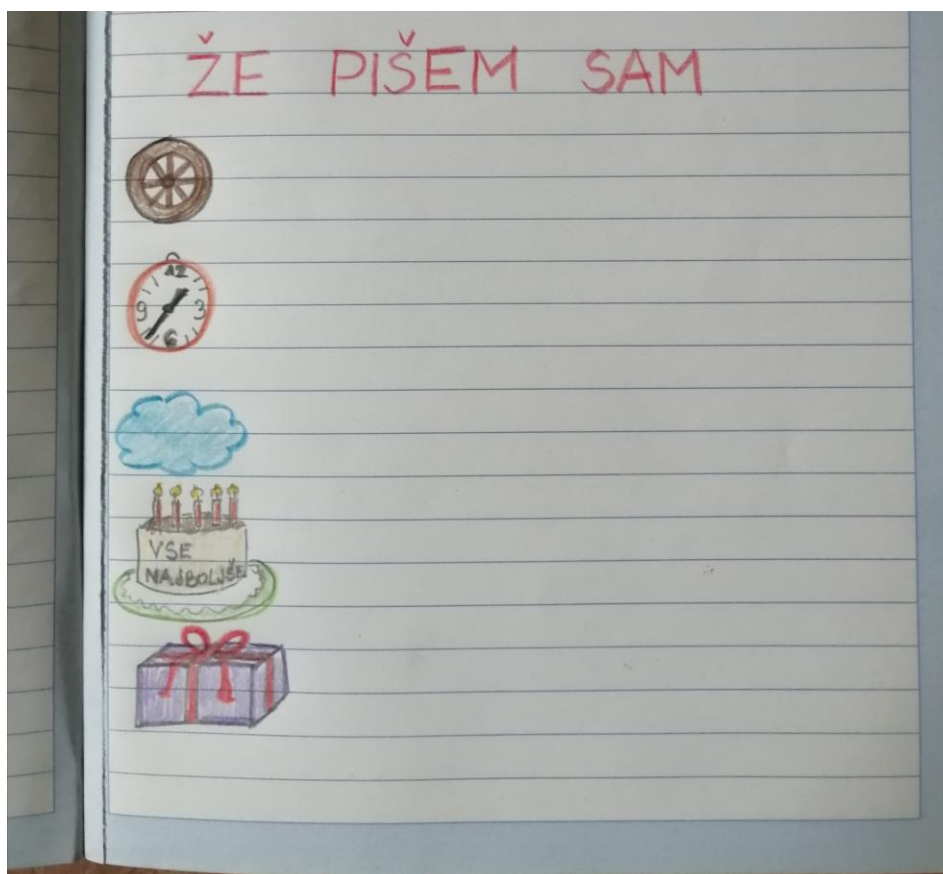 ŽE PIŠEM SAM
12
9 3
6
VSE
NAJBOLJŠE